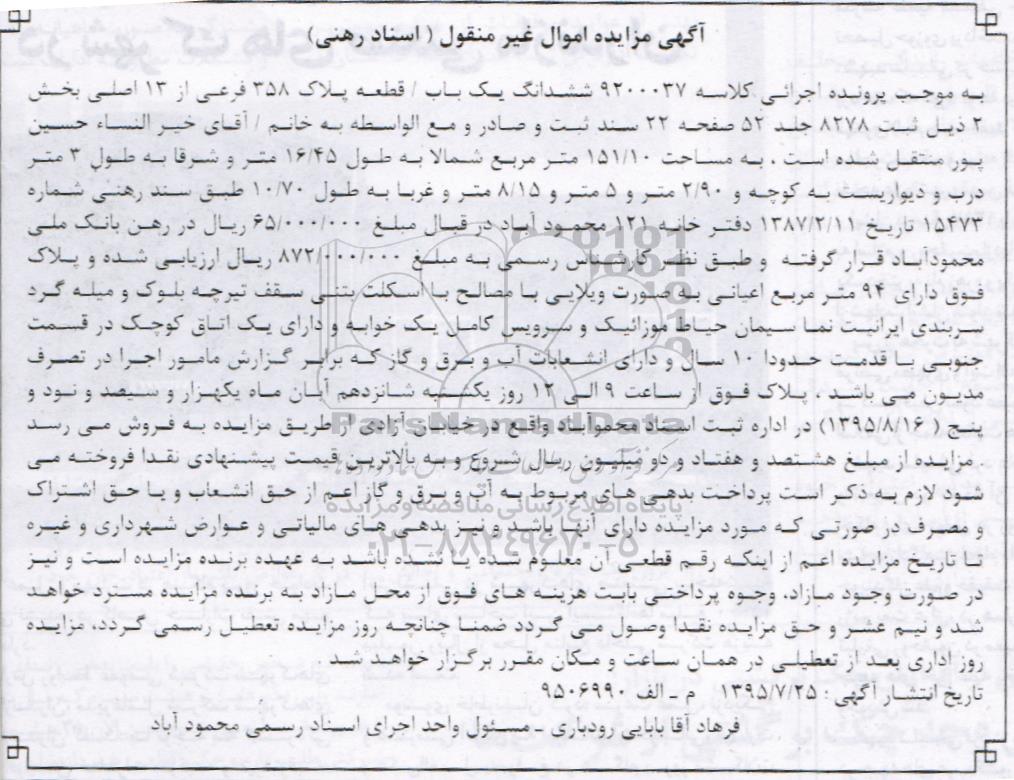 آگهی مزایده اموال غیر منقول ( اسناد رهنی)
به موجب پرونده اجرائی کلاسه ۹۲۰۰۰۳۷ ششدانگ یک باب / قطعه پلاک ۳۵۸ فرعی از ۱۳ اصلی بخش
۲ ذیل ثبت ۸۲۷۸ جلد ۵۲ صفحه ۲۲ سند ثبت و صادر و مع الواسطه به خانم / آقای خیر النساء حسین
پور منتقل شده است . به مساحت ۱۵۱/۱۰ متر مربع شمالا به طول ۱۶/۴۵ متر و شرقا به طول ۳ متر
درب و دیواریست به کوچه و ۲/۹۰ متر و ۵ متر و ۸/۱۵ متر و غربا به طول ۱۰/۷۰ طبق سند رهنی شماره
۱۵۴۷۳ تاریخ ۱۳۸۷/۳/۱۱ دفتر خانه ۱۲۱ محمود آباد در قبال مبلغ ۶۵/۰۰۰/۰۰۰ ریال در رهن بانک ملی
محمودآباد قرار گرفته و طبق نظر کارشناس رسمی به مبلغ ۸۷۲/۰۰۰/۰۰۰ ریال ارزیابی شده و پلاک
فوق دارای ۹۴ متر مربع اعیانی به صورت ویلایی با مصالح با اسکلت بتنی سقف تیرچه بلوک و میله گرد
سربندی ایرانیت نما سیمان حیاط موزائیک و سرویس کامل یک خوابه و دارای یک اتاق کوچک در قسمت
جنوبی با قدمت حدودا ۱۰ سال و دارای انشعابات آب و برق و گاز که برابر گزارش مامور اجرا در تصرف
مدیون می باشد . پلاک فوق از ساعت ۹ الی ۱۲ روز یکشنبه شانزدهم آبان ماه یکهزار و سیصد و نود و
پنج ( ۱۳۹۵/۸/۱۶) در اداره ثبت اسناد محمودآباد واقع در خیابان آزادی از طریق مزایده به فروش می رسد
.مزایده از مبلغ هشتصد و هفتاد و دو میلیون ریال شروع و به بالاترین قیمت پیشنهادی نقدا فروخته می
شود لازم به ذکر است پرداخت بدهی های مربوط به آب و برق و گاز اعم از حق انشعاب و یا حق اشتراک
و مصرف در صورتی که مورد مزایده دارای آنها باشد و نیز بدهی های مالیاتی و عوارض شهرداری و غیره
تا تاریخ مزایده اعم از اینکه رقم قطعی آن معلوم شده یا نشده باشد به عهده برنده مزایده است و نیز
در صورت وجود مازاد، وجوه پرداختی بابت هزینه های فوق از محل مازاد به برنده مزایده مسترد خواهد
شد و نیم عشر و حق مزایده نقدا وصول می گردد ضمنا چنانچه روز مزایده تعطیل رسمی گردد، مزایده
روز اداری بعد از تعطیلی در همان ساعت و مکان مقرر برگزار خواهد شد.
تاریخ انتشار آگهی : ۱۳۹۵/۷/۲۵ م - الف ۹۵۰۶۹۹۰
فرهاد آقابابایی رودباری – مسئول واحد اجرای اسناد رسمی محمود آباد
ParsNamadData
پایگاه اطلاع رسانی مناقصه و مزایده
۰۲۱-۸۸۳۴۹۶۷۰-۵